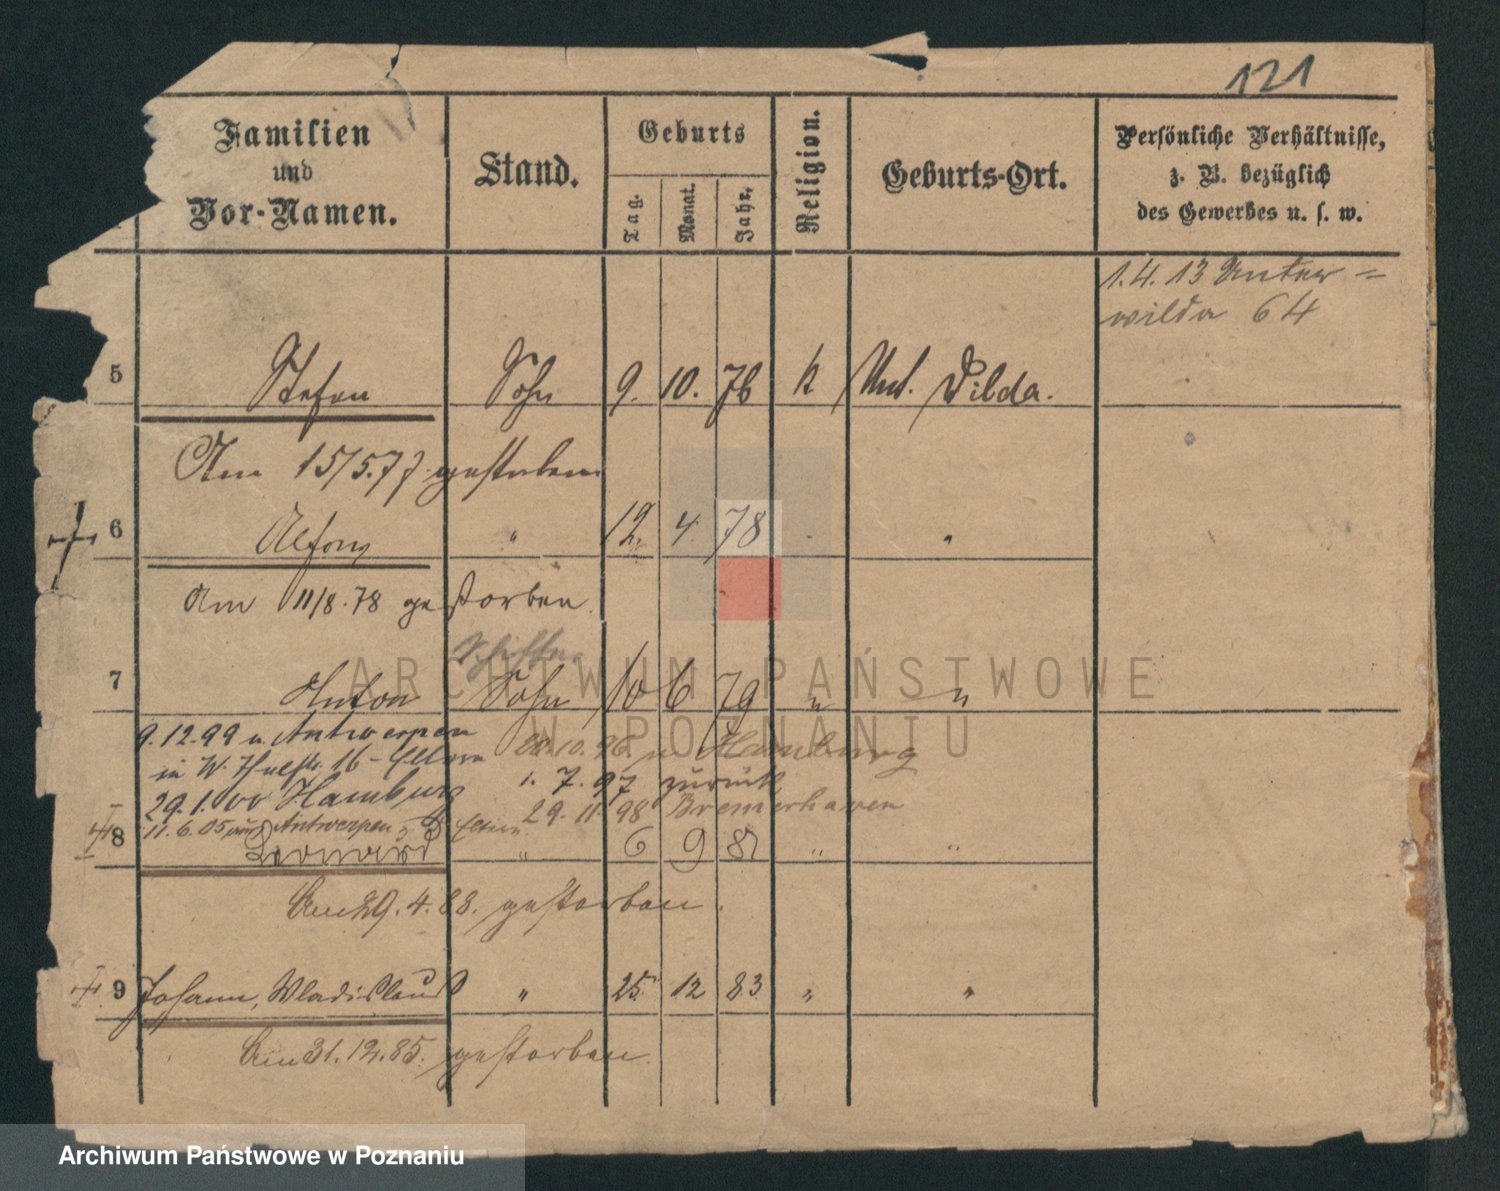 121
Familien
und
Vor-Namen.
Stand.
Geburts
Tag.
Monat.
Jahr.
Religion.
Geburts-Ort.
Persönliche Verhältnisse,
z. B. bezüglich
des Gewerbes u. s. w.
1.4.13 Unter =
wilda 64
5 Stefan Sohn 9. 10. 76 k Unt. Wilda.
Am 15/5.77 gestorben
6 Alfons " 12. 4 78 "
Am 11/8.78 gestorben.
7 Anton Sohn 10 6 79 " "
9.12.99 n. Antwerpen
10.96 n Hamburg
in W. 16 - Eltern
1. 7. 97 zurück
29.1.00 Hamburg
29.11.98 Bremerhaven
11.6.05 aus Antwerpen z. d. Eltern
8 Leonard " 6 9 81 " "
Am 29.4.88. gestorben.
9 Johann, Wladislaus " 25. 12 83 " "
Am 31.12.85. gestorben.
ARCHIWUM PAŃSTWOWE
W POZNANIU
Archiwum Państwowe w Poznaniu